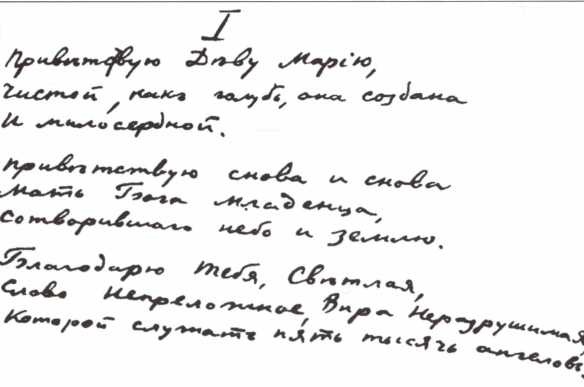 I
Привѣтствую Дѣву Марію,
Чистой, какъ голубь, она создана
И милосердной.
Привѣтствую снова и снова
Мать Бога младенца,
Сотворившаго небо и землю.
Благодарю тебя, Свѣтлая,
Слово Непреложное, Вѣра Неразрушимая,
Которой служатъ пять тысячъ ангеловъ,